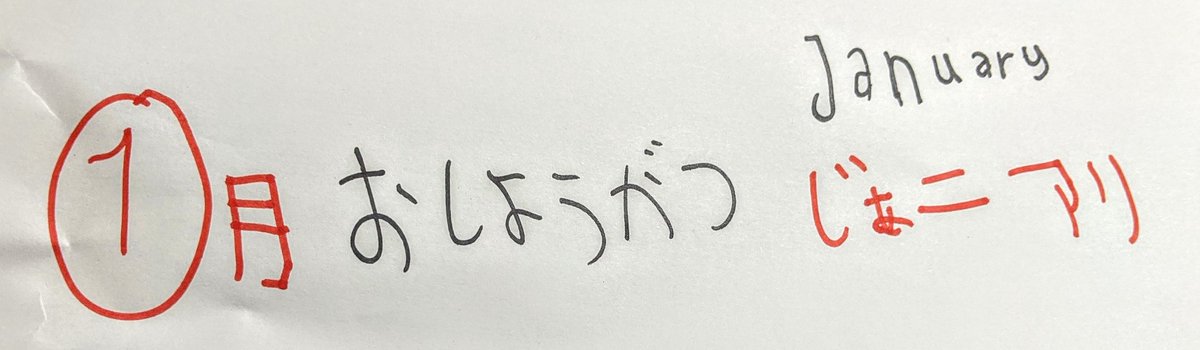 January
①月 おしょうがつ じぁニアリ